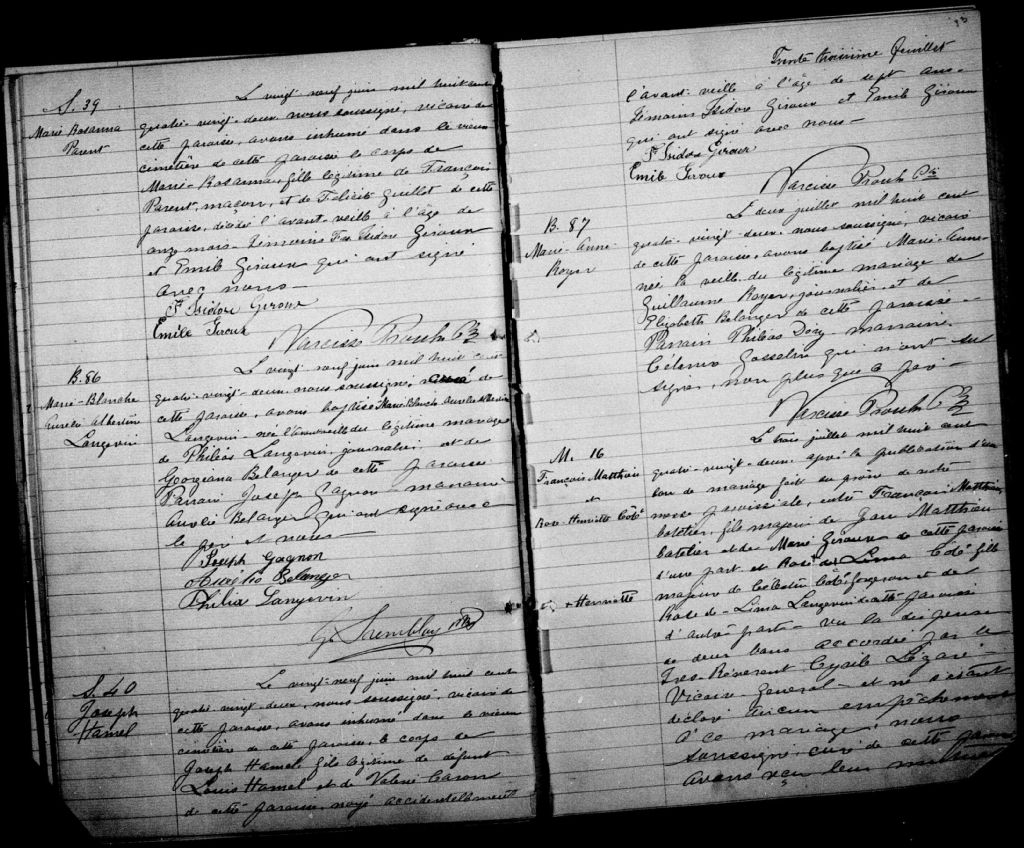 S. 39
Marie Rosanna
Parent
Le vingt neuf juin mil huit cent
quatre-vingt-deux nous soussigné, vicaire de
cette paroisse, avons inhumé dans le vieux
cimetière de cette paroisse le corps de
Marie-Rosanna, fille légitime de François
Parent, maçon, et de Félicité Guillot de cette
paroisse, décédé l'avant-veille à l'âge de
onze mois. Témoins Frs. Isidore Giroux
et Emile Giroux qui ont signé
avec nous—
F. Isidore Giroux
Emile Giroux
Narcisse Proulx Ptre
B. 86
Marie-Blanche
Aurélie Albertine
Langevin
Le vingt neuf juin mil huit cent
quatre-vingt-deux, nous soussigné, curé de
cette paroisse, avons baptisé Marie Blanche Aurélie Albertine
Langevin née l'avant veille du légitime mariage
de Philias Langevin, journalier et de
Georgiana Belanger de cette paroisse
Parrain Joseph Gagnon marraine
Aurélie Belanger qui ont signé avec
le père et nous
Joseph Gagnon
Aurélie Belanger
Philia Langevin
G. Tremblay ptre
S. 40
Joseph
Hamel
Le vingt-neuf juin mil huit cent
quatre vingt deux, nous soussigné, vicaire de
cette paroisse, avons inhumé dans le vieux
cimetière de cette paroisse, le corps de
Joseph Hamel fils légitime de défunt
Louis Hamel et de Valerie Caron
de cette paroisse, noyé accidentellement
Trente troisième feuillet
l'avant-veille à l'âge de sept ans.
Témoins Isidore Giroux et Emile Giroux
qui ont signé avec nous—
F. Isidore Giroux
Emile Giroux
Narcisse Proulx Ptre
B. 87
Marie-Anne-
Royer
Le deux juillet mil huit cent
quatre-vingt-deux, nous soussigné, vicaire
de cette paroisse, avons baptisé Marie-Anne-
née la veille du légitime mariage de
Guillaume Royer, journalier et de
Elizabeth Belanger de cette paroisse—
Parrain Philias Dory marraine
Célanire Gosselin qui n'ont su
signer, non plus que le père—
Narcisse Proulx Ptre
M. 16
François Matthieu
et
Rose-Henriette Côté
Le trois juillet mil huit cent
quatre-vingt-deux, après la publication d'un
ban de mariage fait au prône de notre
messe paroissiale, entre François Matthieu,
batelier, fils majeur de Jean Matthieu
batelier et de Marie Giroux de cette paroisse
d'une part et Rose de Lima Côté fille
majeure de Célestin Côté, forgeron et de
+ Henriette
Rose de-Lima Langevin de cette paroisse
d'autre part— vu la dispense
de deux bans accordée par le
Très-Révérent Cyrile Légaré
Vicaire-Général— et ne s'étant
déclaré aucun empêchement
à ce mariage, nous
soussigné, curé de cette paroisse
avons reçu leur mutuel